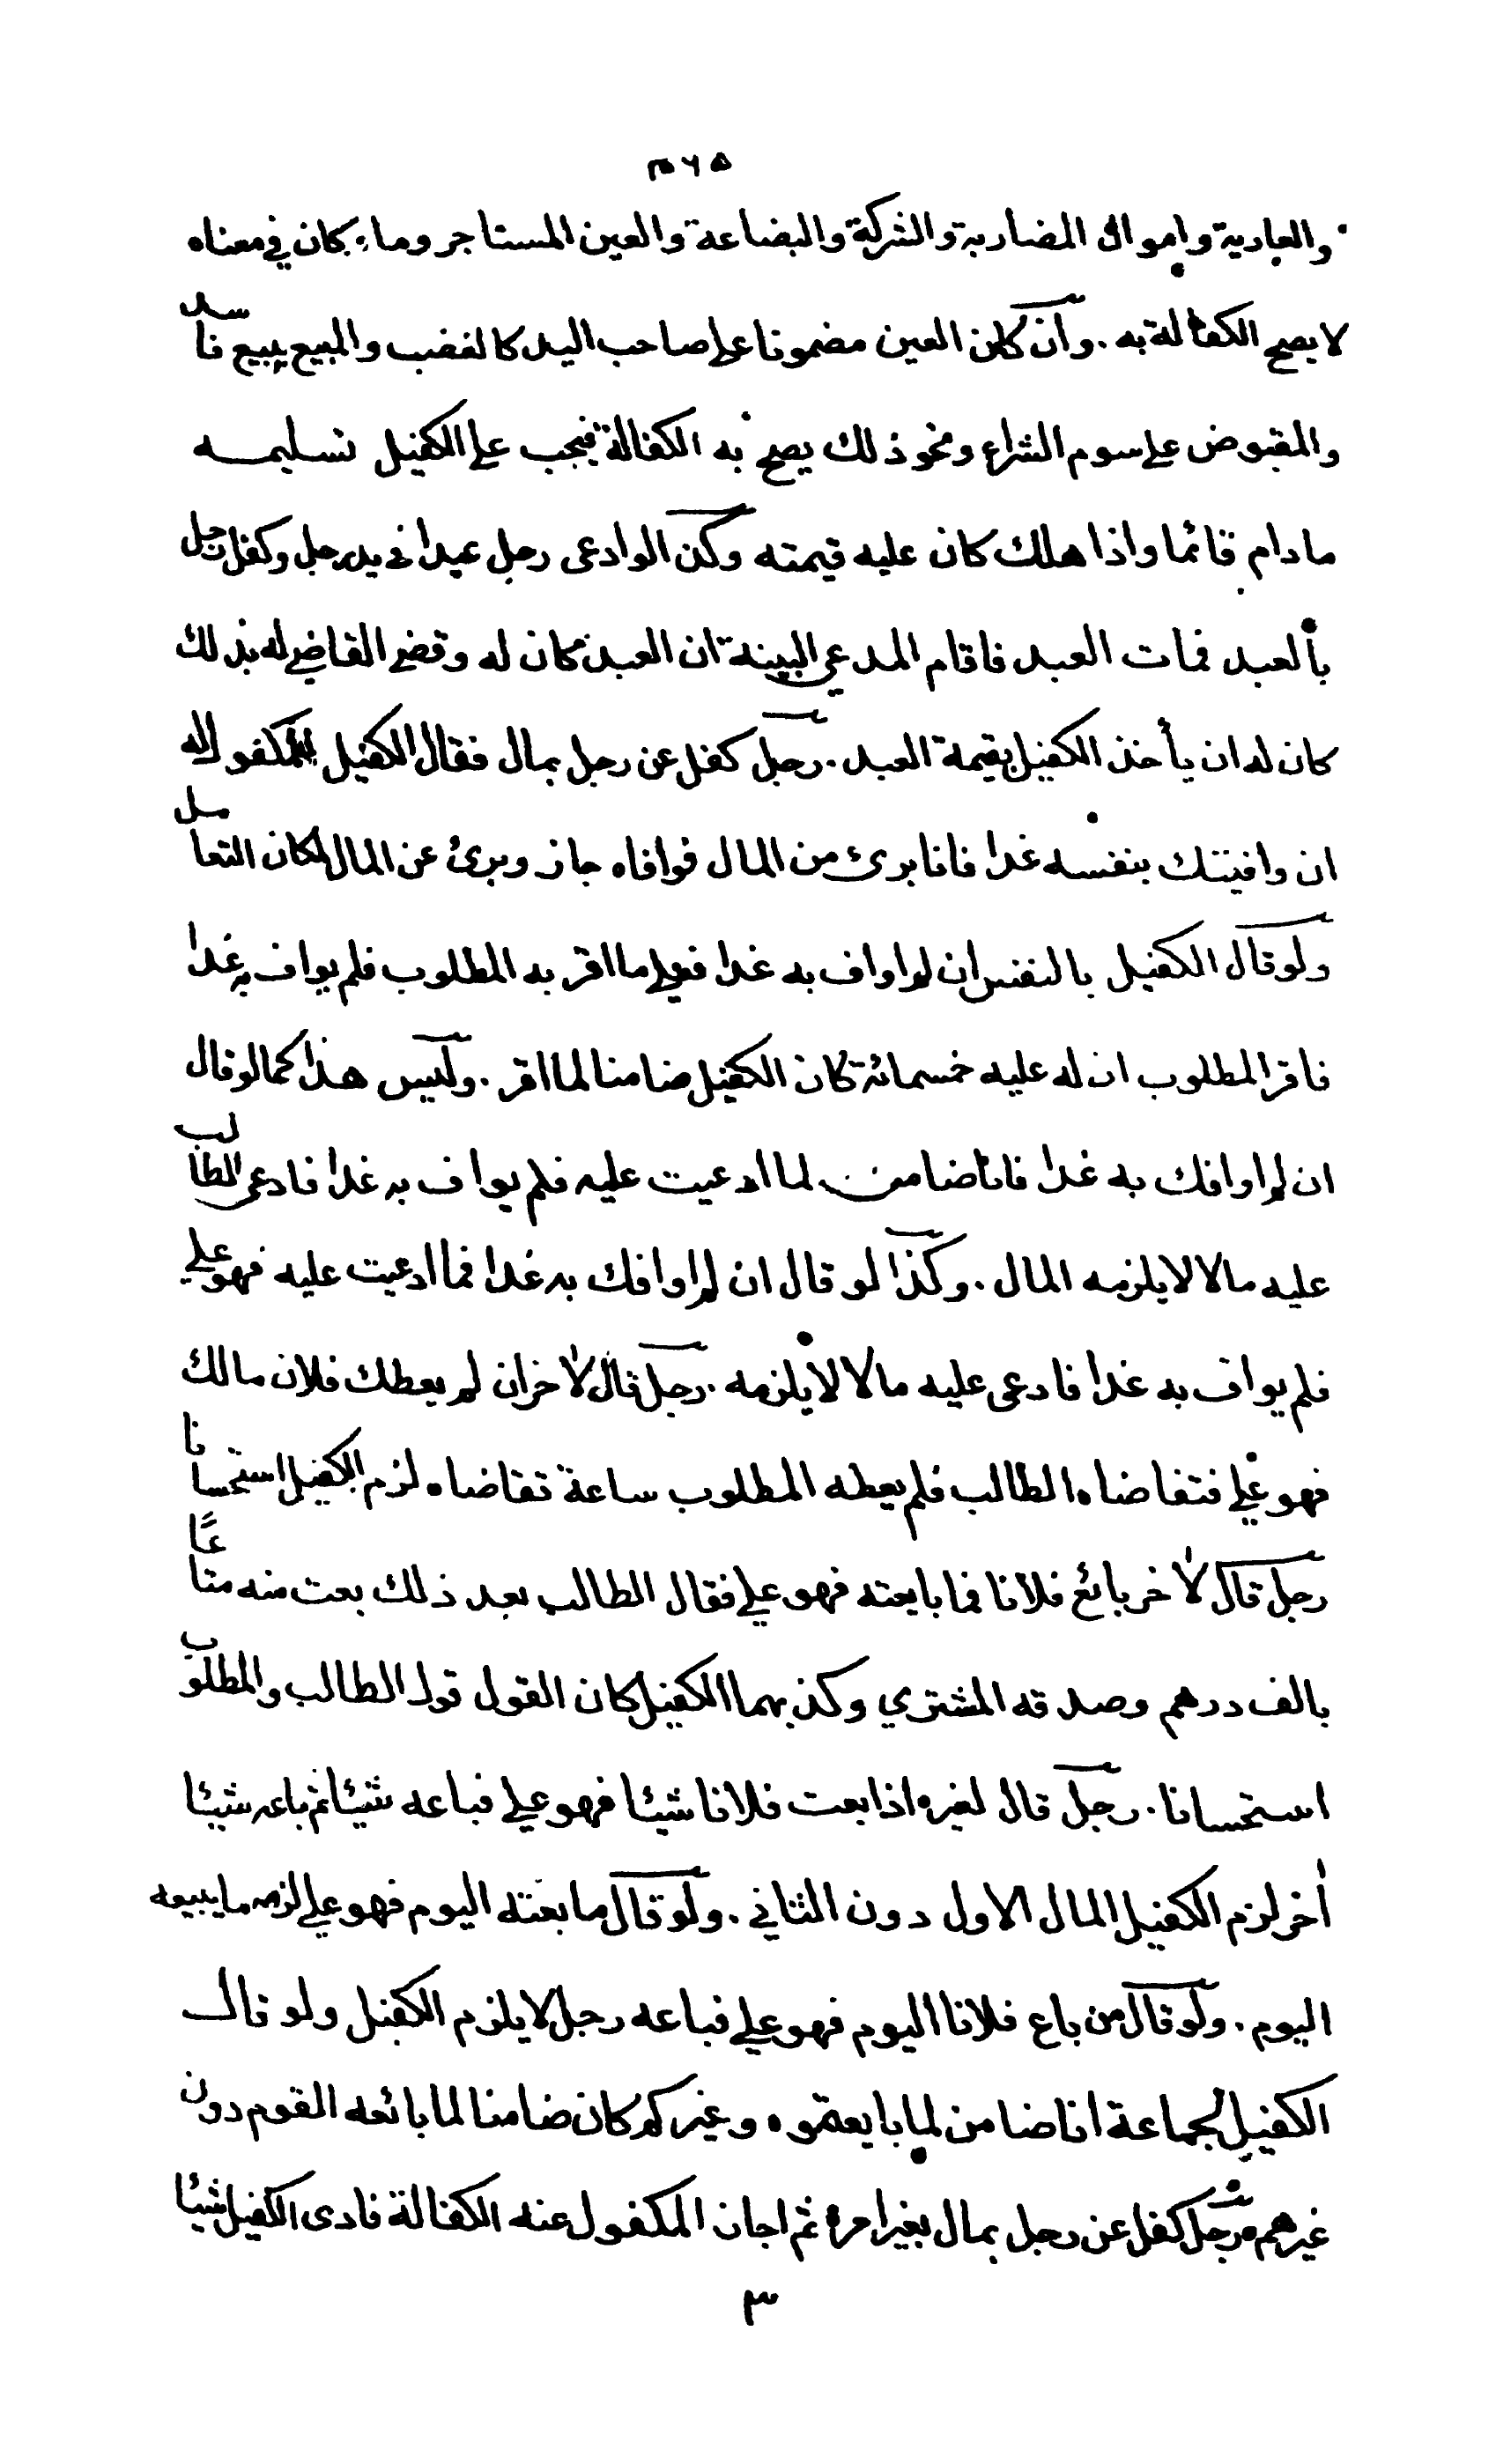 ٣٦٥
والعارية واموال المضاربة والشركة والبضاعة والعين المستاجر وما كان في معناه
لا يصح الكفالة به . وان كان العين مضمونا على صاحب اليد كالغصب والمبيع ببيع فاسد
والمقبوض على سوم الشراء ونحو ذلك يصح به الكفالة فيجب على الكفيل تسليمه
ما دام قائما واذا هلك كان عليه قيمته وكذا لو ادعى رجل عبدا في يد رجل وكفل رجل
بالعبد فمات العبد فاقام المدعي البينة ان العبد كان له وقضى القاضي له بذلك
كان له ان يأخذ الكفيل بقيمة العبد . رجل كفل عن رجل بمال فقال الكفيل للمكفول له
ان وافيتك بنفسه غدا فانا برئ من المال فوافاه جاز وبرئ عن المال لمكان التعامل
ولو قال الكفيل بالنفس ان لم اواف به غدا فعلي ما اقر به المطلوب فلم يواف به غدا
فاقر المطلوب ان له عليه خمسمائة كان الكفيل ضامنا لما اقر . وليس هذا كما لو قال
ان لم اوافك به غدا فانا ضامن لما ادعيت عليه فلم يواف به غدا فادعى الطالب
عليه مالا لا يلزمه المال . وكذا لو قال ان لم اوافك به غدا فما ادعيت عليه فهو علي
فلم يواف به غدا فادعى عليه مالا لا يلزمه . رجل قال لاخر ان لم يعطك فلان مالك
فهو علي فتقاضاه الطالب فلم يعطه المطلوب ساعة تقاضاه لزم الكفيل استحسانا
رجل قال لاخر بائع فلانا فما بايعته فهو علي فقال الطالب بعد ذلك بعت منه متاعًا
بالف درهم وصدقه المشتري وكذبهما الكفيل كان القول قول الطالب والمطلوب
استحسانا . رجل قال لغيره اذا بعت فلانا شيئا فهو علي فباعه شيئا ثم باعه شيئا
اخر لزم الكفيل المال الاول دون الثاني . ولو قال ما بعته اليوم فهو علي لزمه ما يبيعه
اليوم . ولو قال من باع فلانا اليوم فهو علي فباعه رجل لا يلزم الكفيل ولو قال
الكفيل لجماعة انا ضامن لما بايعتموه وغيركم كان ضامنا لما بائعه القوم دون
غيرهم . رجل كفل عن رجل بمال بغير امره ثم اجاز المكفول عنه الكفالة فادى الكفيل شيئا
٣